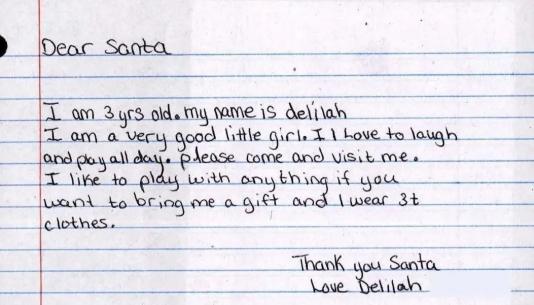 Dear Santa
I am 3 yrs old. my name is delilah
I am a very good little girl. I I Love to laugh
and play all day. please come and visit me.
I like to play with anything if you
want to bring me a gift and I wear 3t
clothes.
Thank you Santa
Love Delilah